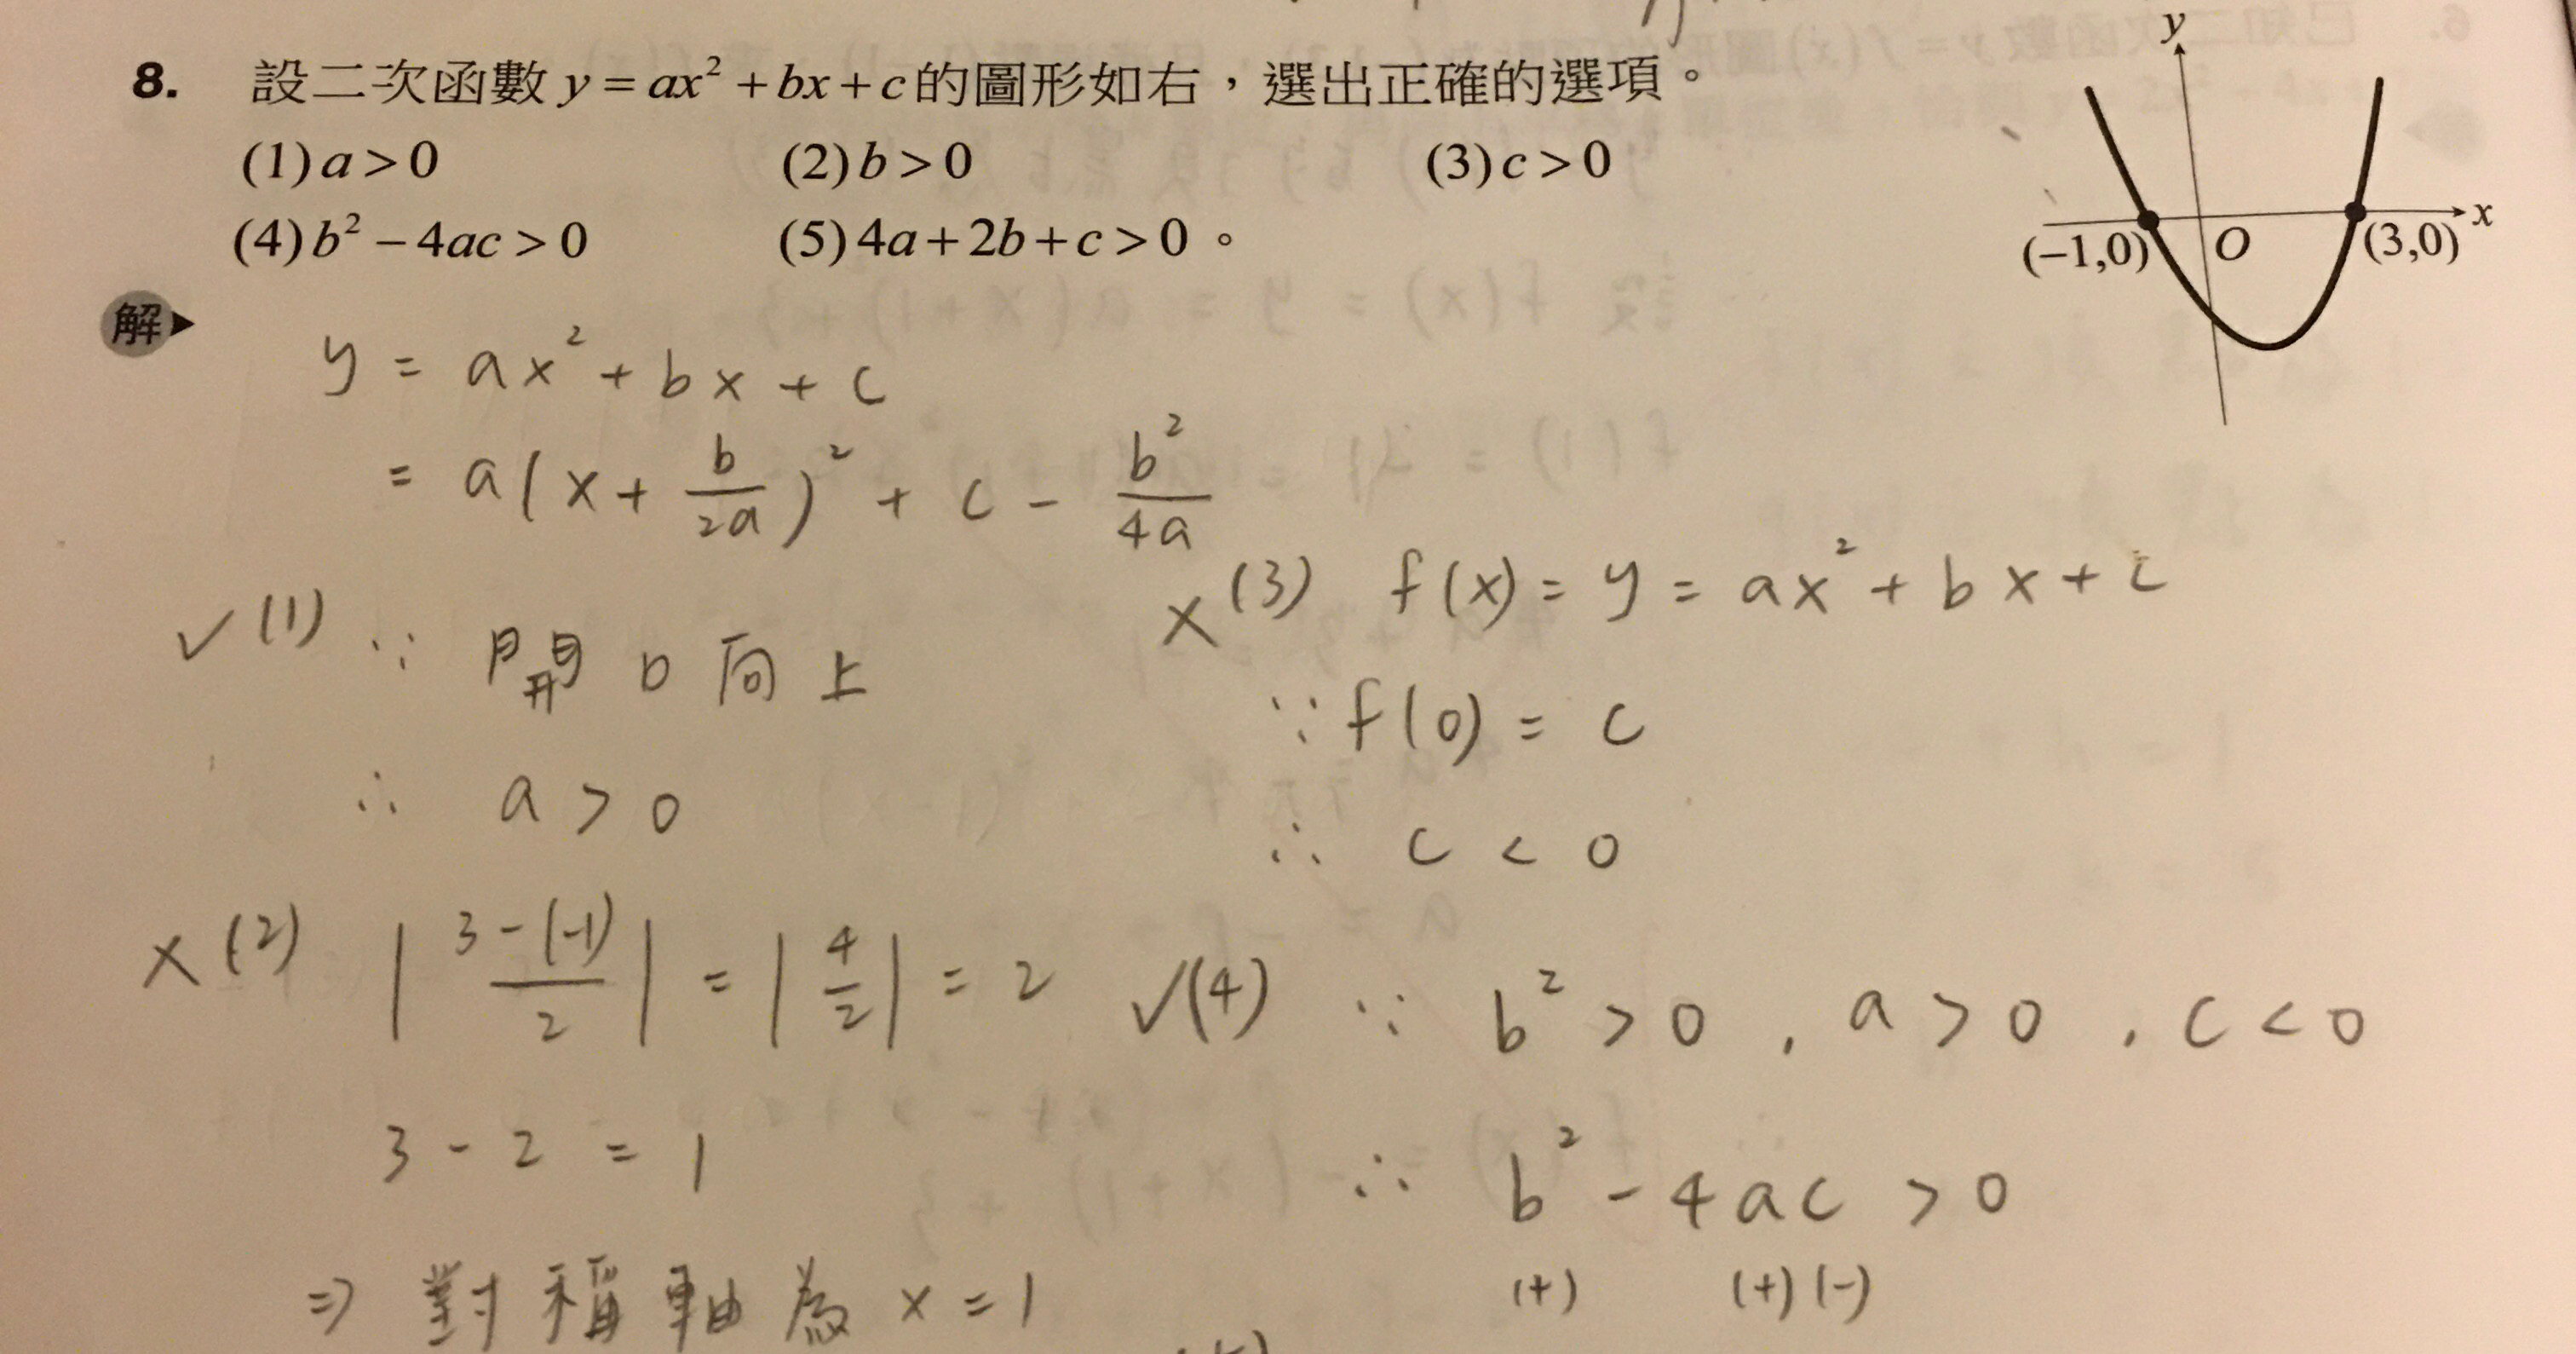 8. 設二次函數 y = ax² + bx + c 的圖形如右，選出正確的選項。
(1) a > 0 (2) b > 0 (3) c > 0
(4) b² − 4ac > 0 (5) 4a + 2b + c > 0。
y
x
(−1,0)
O
(3,0)
解
y = ax² + bx + c
= a(x + b/2a)² + c - b²/4a
✓(1) ∵ 開口向上
∴ a > 0
×(2) |3-(-1)/2| = |4/2| = 2
3 - 2 = 1
⇒ 對稱軸為 x = 1
×(3) f(x) = y = ax² + bx + c
∵ f(0) = c
∴ c < 0
✓(4) ∵ b² > 0 , a > 0 , c < 0
∴ b² - 4ac > 0
(+) (+)(-)